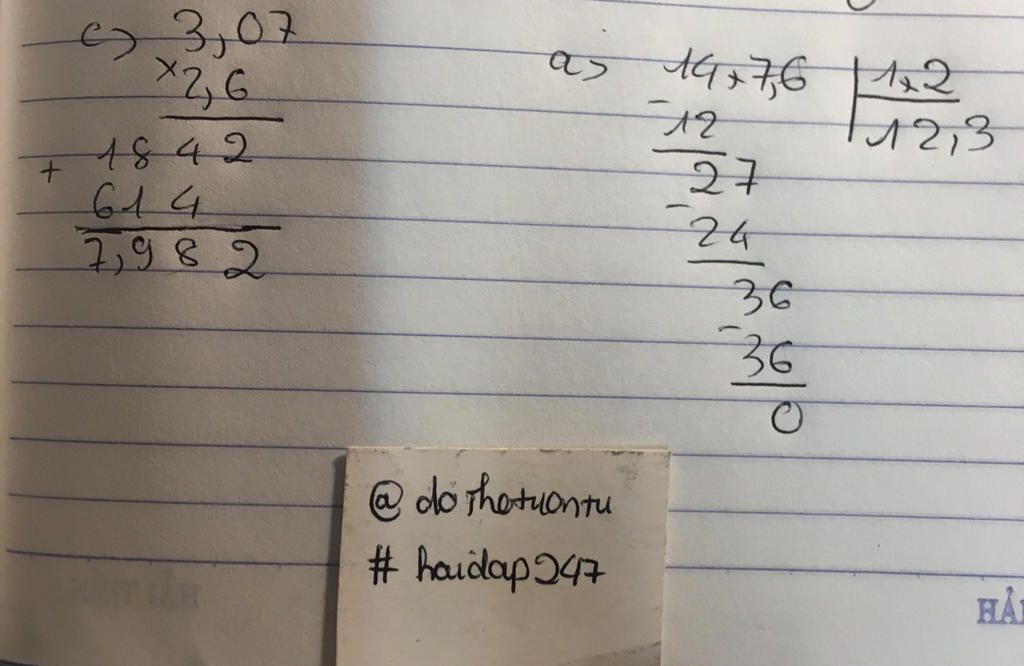 c> 3,07
×2,6
+ 1842
614
7,982
a> 14,7,6 | 1,2
- 12 12,3
27
- 24
36
- 36
0
@dothetuantu
# hoidap247
HẢI